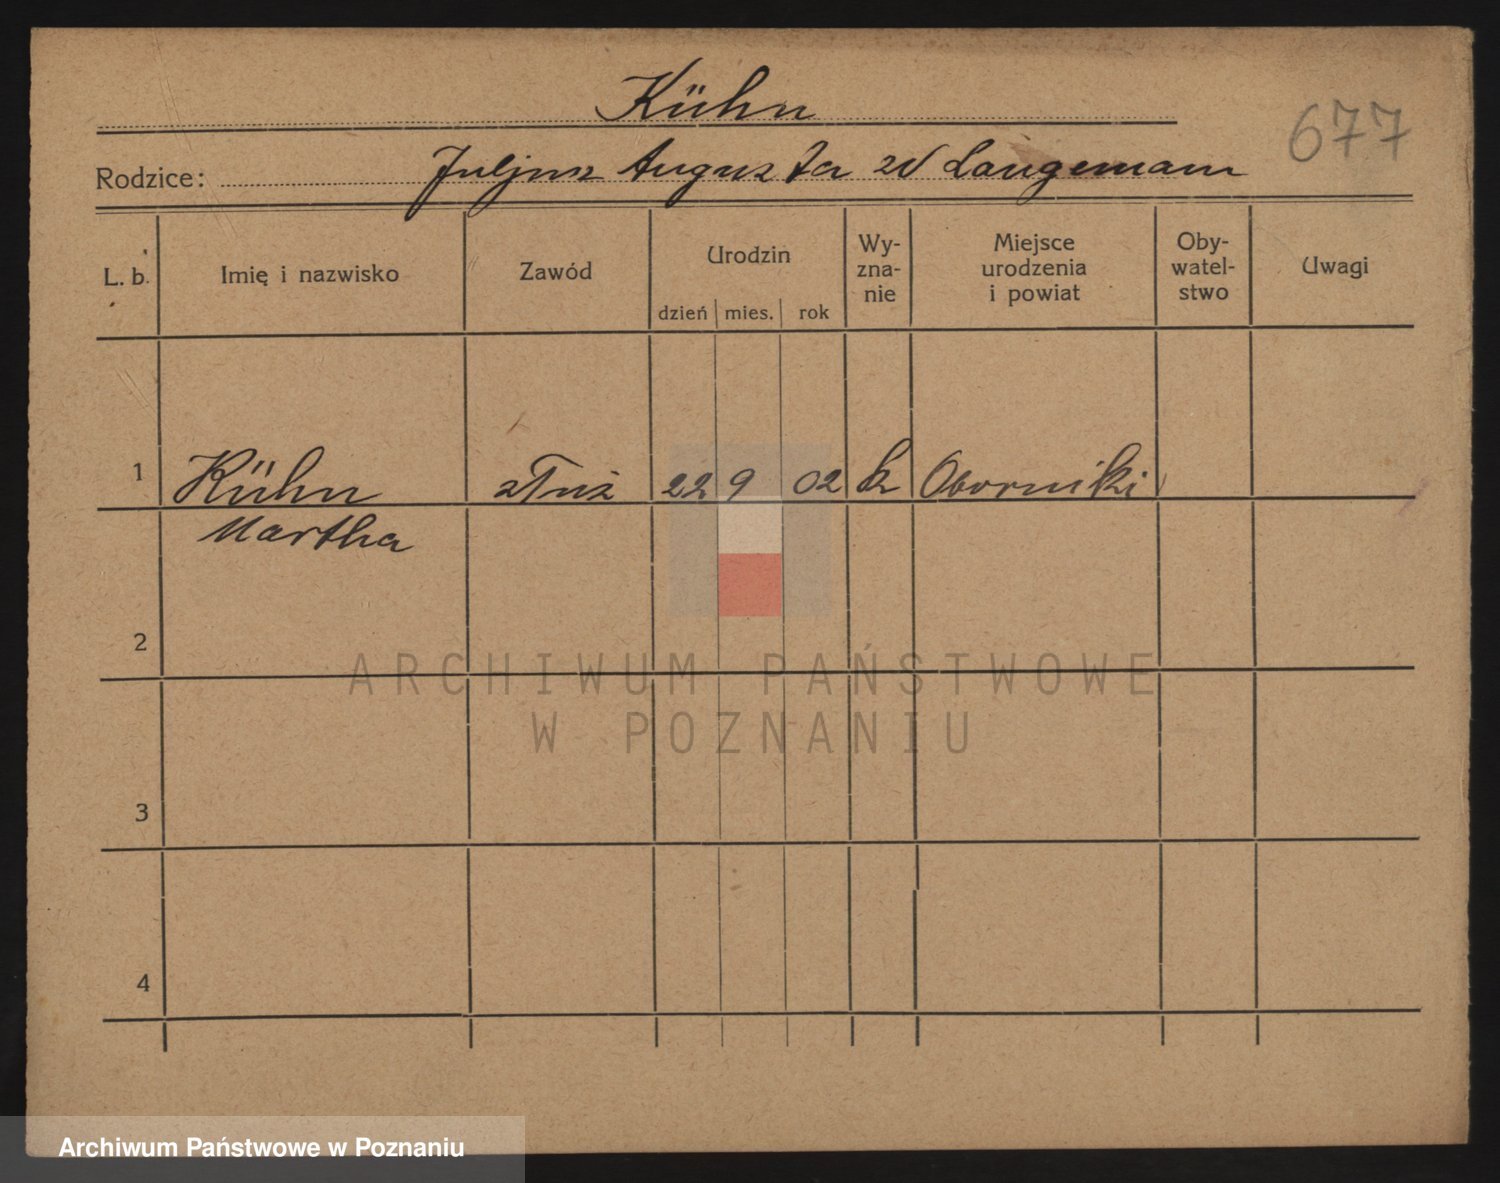 Kühn
677
Rodzice: Juljusz Augusta zd Langemann
L. b. Imię i nazwisko Zawód Urodzin dzień mies. rok Wy-zna-nie Miejsce urodzenia i powiat Oby-watel-stwo Uwagi
1 Kühn służ 22 9 02 k Oborniki
Martha
2
ARCHIWUM PAŃSTWOWE
W POZNANIU
3
4
Archiwum Państwowe w Poznaniu